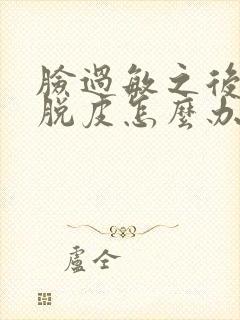 臉過敏之後
脫皮怎麼办
盧仝